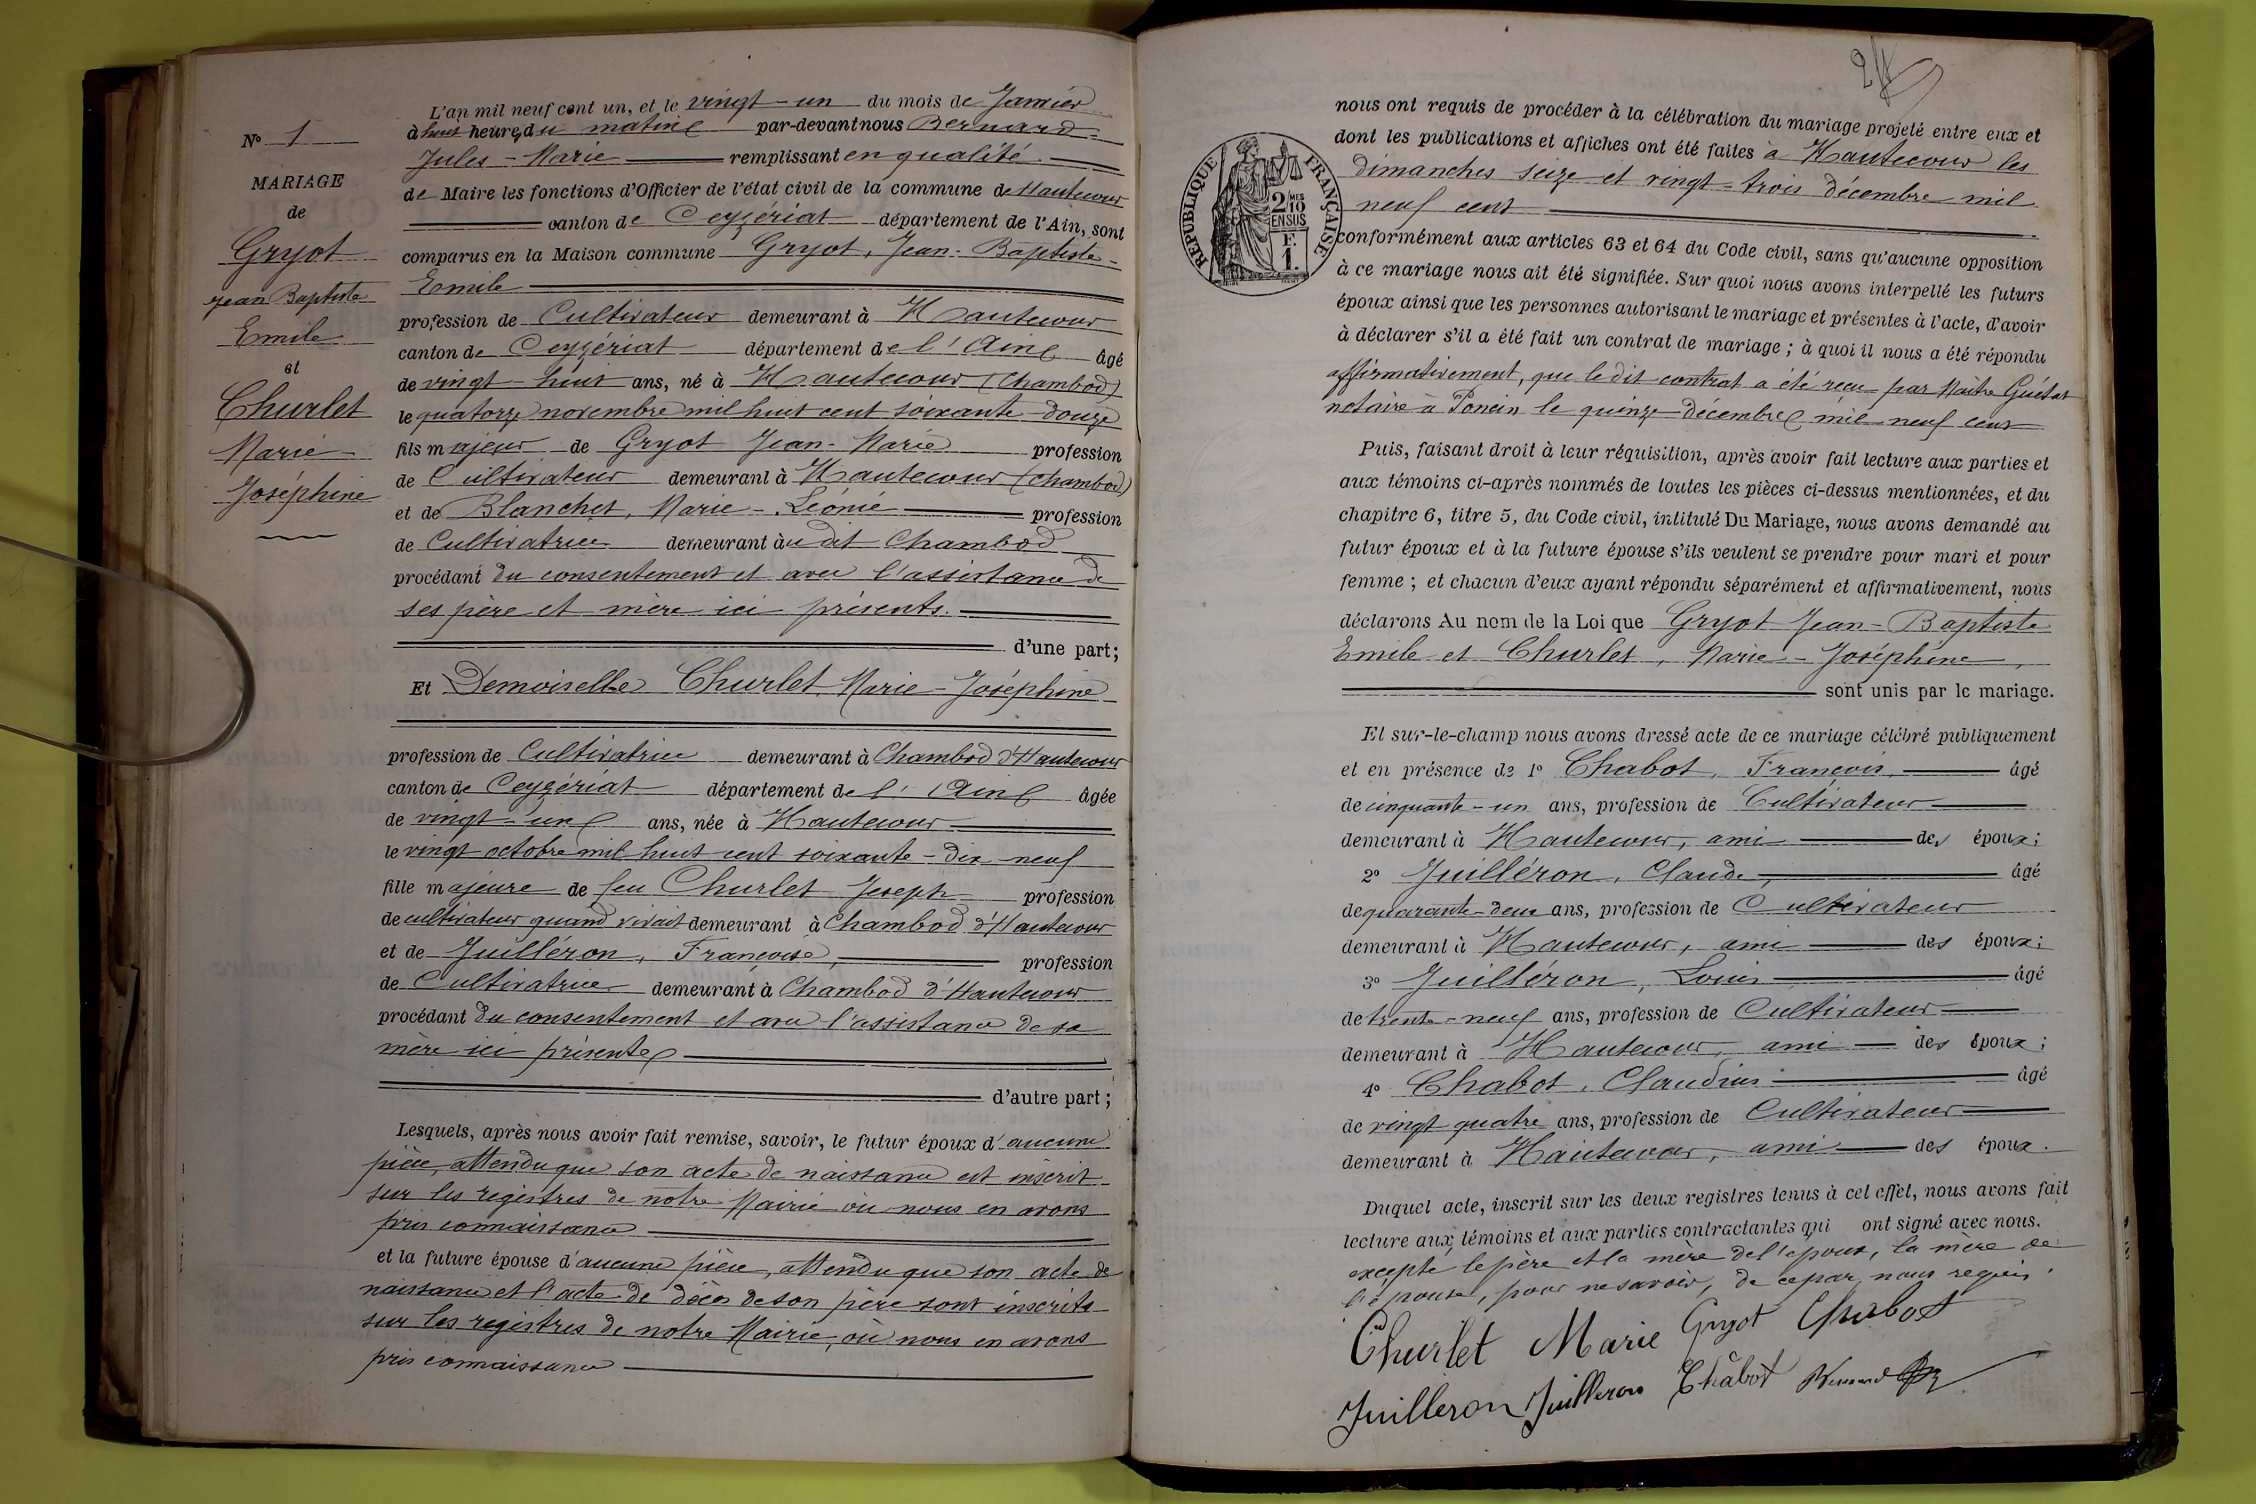 N° 1
MARIAGE
de
Gryot
Jean Baptiste
Emile
et
Churlet
Marie
Joséphine
L'an mil neuf cent un, et le vingt-un du mois de Janvier
à huit heures du matin par-devant nous Bernard
Jules-Marie remplissant en qualité
de Maire les fonctions d'Officier de l'état civil de la commune de Hautecour
canton de Ceyzériat département de l'Ain, sont
comparus en la Maison commune Gryot, Jean-Baptiste-
Emile
profession de Cultivateur demeurant à Hautecour
canton de Ceyzériat département de l'Ain âgé
de vingt-huit ans, né à Hautecour (Chambod)
le quatorze novembre mil huit cent soixante-douze
fils majeur de Gryot Jean-Marie profession
de Cultivateur demeurant à Hautecour (Chambod)
et de Blanchet, Marie-Léonie profession
de Cultivatrice demeurant àudit Chambod
procédant du consentement et avec l'assistance de
ses père et mère ici présents.
d'une part;
Et Demoiselle Churlet Marie-Joséphine
profession de Cultivatrice demeurant à Chambod d'Hautecour
canton de Ceyzériat département de l'Ain âgée
de vingt-un ans, née à Hautecour
le vingt octobre mil huit cent soixante-dix-neuf
fille majeure de feu Churlet Joseph profession
de cultivateur quand vivait demeurant à Chambod d'Hautecour
et de Juilléron, Françoise, profession
de Cultivatrice demeurant à Chambod d'Hautecour
procédant du consentement et avec l'assistance de sa
mère ici présente
d'autre part;
Lesquels, après nous avoir fait remise, savoir, le futur époux d'aucune
pièce, attendu que son acte de naissance est inscrit
sur les registres de notre Mairie où nous en avons
pris connaissance
et la future épouse d'aucune pièce, attendu que son acte de
naissance et l'acte de décès de son père sont inscrits
sur les registres de notre Mairie, où nous en avons
pris connaissance
2
RÉPUBLIQUE FRANÇAISE
2/10 MES
EN SUS
F.
1.
nous ont requis de procéder à la célébration du mariage projeté entre eux et
dont les publications et affiches ont été faites à Hautecour les
dimanches seize et vingt-trois décembre mil
neuf cent
conformément aux articles 63 et 64 du Code civil, sans qu'aucune opposition
à ce mariage nous ait été signifiée. Sur quoi nous avons interpellé les futurs
époux ainsi que les personnes autorisant le mariage et présentes à l'acte, d'avoir
à déclarer s'il a été fait un contrat de mariage; à quoi il nous a été répondu
affirmativement, que le dit contrat a été reçu par Maître Guétat
notaire à Poncin le quinze décembre mil neuf cent
Puis, faisant droit à leur réquisition, après avoir fait lecture aux parties et
aux témoins ci-après nommés de toutes les pièces ci-dessus mentionnées, et du
chapitre 6, titre 5, du Code civil, intitulé Du Mariage, nous avons demandé au
futur époux et à la future épouse s'ils veulent se prendre pour mari et pour
femme; et chacun d'eux ayant répondu séparément et affirmativement, nous
déclarons Au nom de la Loi que Gryot Jean-Baptiste
Emile et Churlet, Marie-Joséphine,
sont unis par le mariage.
Et sur-le-champ nous avons dressé acte de ce mariage célébré publiquement
et en présence de 1° Chabot, François, âgé
de cinquante-un ans, profession de Cultivateur
demeurant à Hautecour, ami des époux;
2° Juilléron, Claude, âgé
de quarante-deux ans, profession de Cultivateur
demeurant à Hautecour, ami des époux;
3° Juilléron, Louis âgé
de trente-neuf ans, profession de Cultivateur
demeurant à Hautecour, ami des époux;
4° Chabot, Claudius âgé
de vingt quatre ans, profession de Cultivateur
demeurant à Hautecour, ami des époux.
Duquel acte, inscrit sur les deux registres tenus à cet effet, nous avons fait
lecture aux témoins et aux parties contractantes qui ont signé avec nous.
excepté le père et la mère de l'époux, la mère de
l'épouse, pour ne savoir, de ce par nous requis.
Churlet Marie Gryot Chabot
Juilleron Juilleron Chabot Bernard